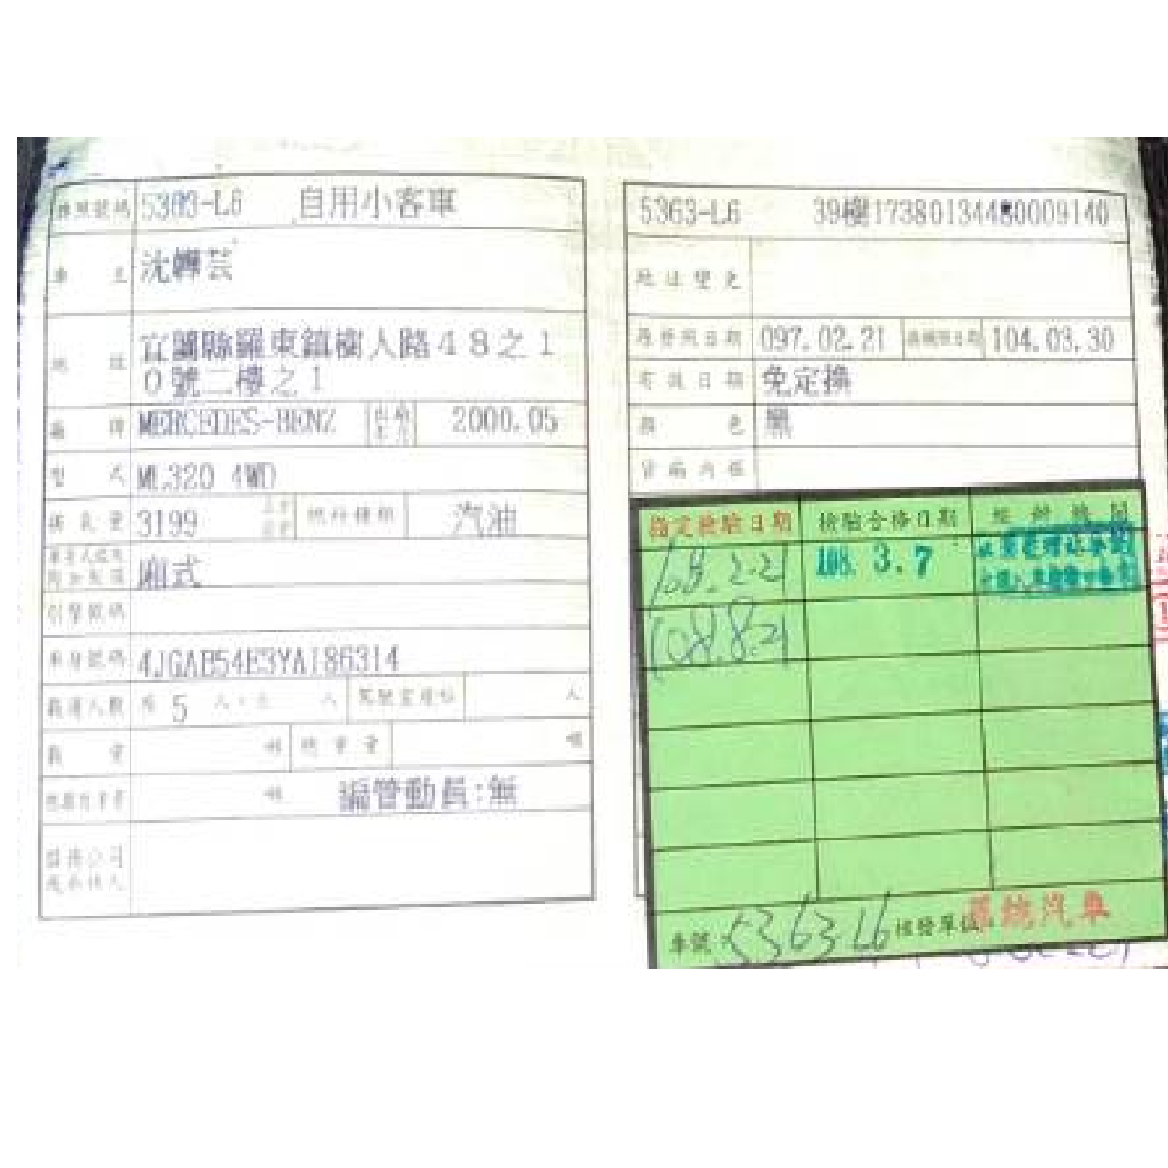 牌照號碼 5363-L6 自用小客車
車主 沈韡芸
地址 宜蘭縣羅東鎮樹人路48之1
0號二樓之1
廠牌 MERCEDES-BENZ 出廠年月 2000.05
型式 ML320 4WD
排氣量 3199 燃料種類 汽油
廂式
引擎號碼
車身號碼 4JGAB54E3YA186314
載運人數 5 人 人 駕駛室座位 人
載重 噸 總重量 噸
噸 編管動員:無
5363-L6 39樹17380134480009140
地址變更
原發照日期 097.02.21 換補照日期 104.03.30
有效日期 免定換
顏色 黑
指定檢驗日期 檢驗合格日期
108.2.21 108.3.7
108.8.21
車號:5363-L6 核發單位
汽車